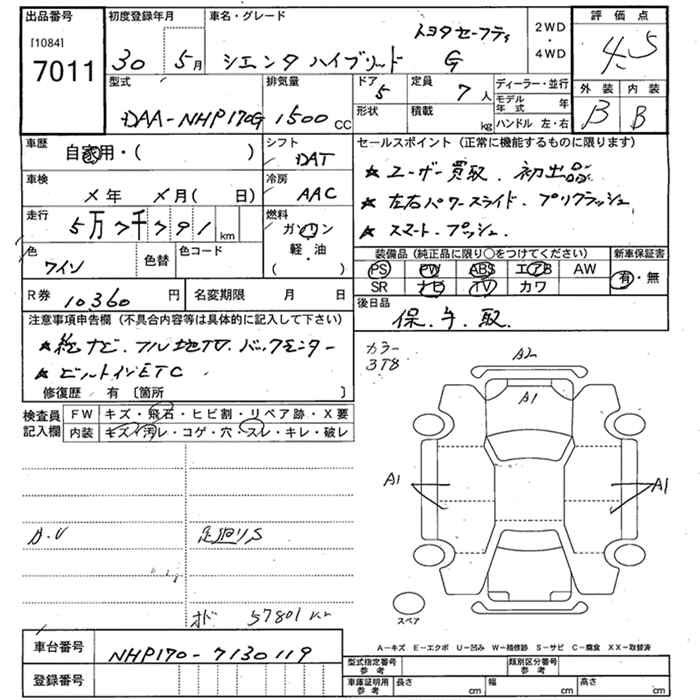 出品番号 初度登録年月 車名・グレード 評価点
[1084] トヨタセーフティ 2WD・4WD 4.5
7011 30 5月 シエンタ ハイブリード G
外装 内装
型式 排気量 ドア 5 定員 7人 ディーラー・並行
B B
DAA-NHP170G 1500cc 形状 積載 kg モデル年式 年
ハンドル 左・右
車歴 自家用・( ) シフト DAT セールスポイント (正常に機能するものに限ります)
★ユーザー買取. 初出品
車検 メ年 メ月( 日) 冷房 AAC
★左右パワースライド. プリクラッシュ
走行 5万7千791km 燃料 ガソリン
★スマートプッシュ.
軽・油
( )
色 ワイン 色替 色コード
装備品(純正品に限り○をつけてください) 新車保証書
PS PW ABS エアB AW 有・無
SR ナビ TV カワ
R券 10,360円 名変期限 月 日
後日品
保.手.取.
注意事項申告欄 (不具合内容等は具体的に記入して下さい)
★純ナビ.フル地TV.バックモニター
★ビルトインETC
修復歴 有 〔箇所 〕
カラー
3T8
A2
A1
検査員記入欄 FW キズ・飛石・ヒビ割・リペア跡・X要
内装 キズ・汚レ・コゲ・穴・スレ・キレ・破レ
A1 A1
足廻りS
オド 57801km
スペア
A-キズ E-エクボ U-凹み W-補修跡 S-サビ C-腐食 XX-取替済
車台番号 NHP170-7130119
登録番号
型式指定番号 参考 類別区分番号 参考
車庫証明用 参考 長さ cm 幅 cm 高さ cm